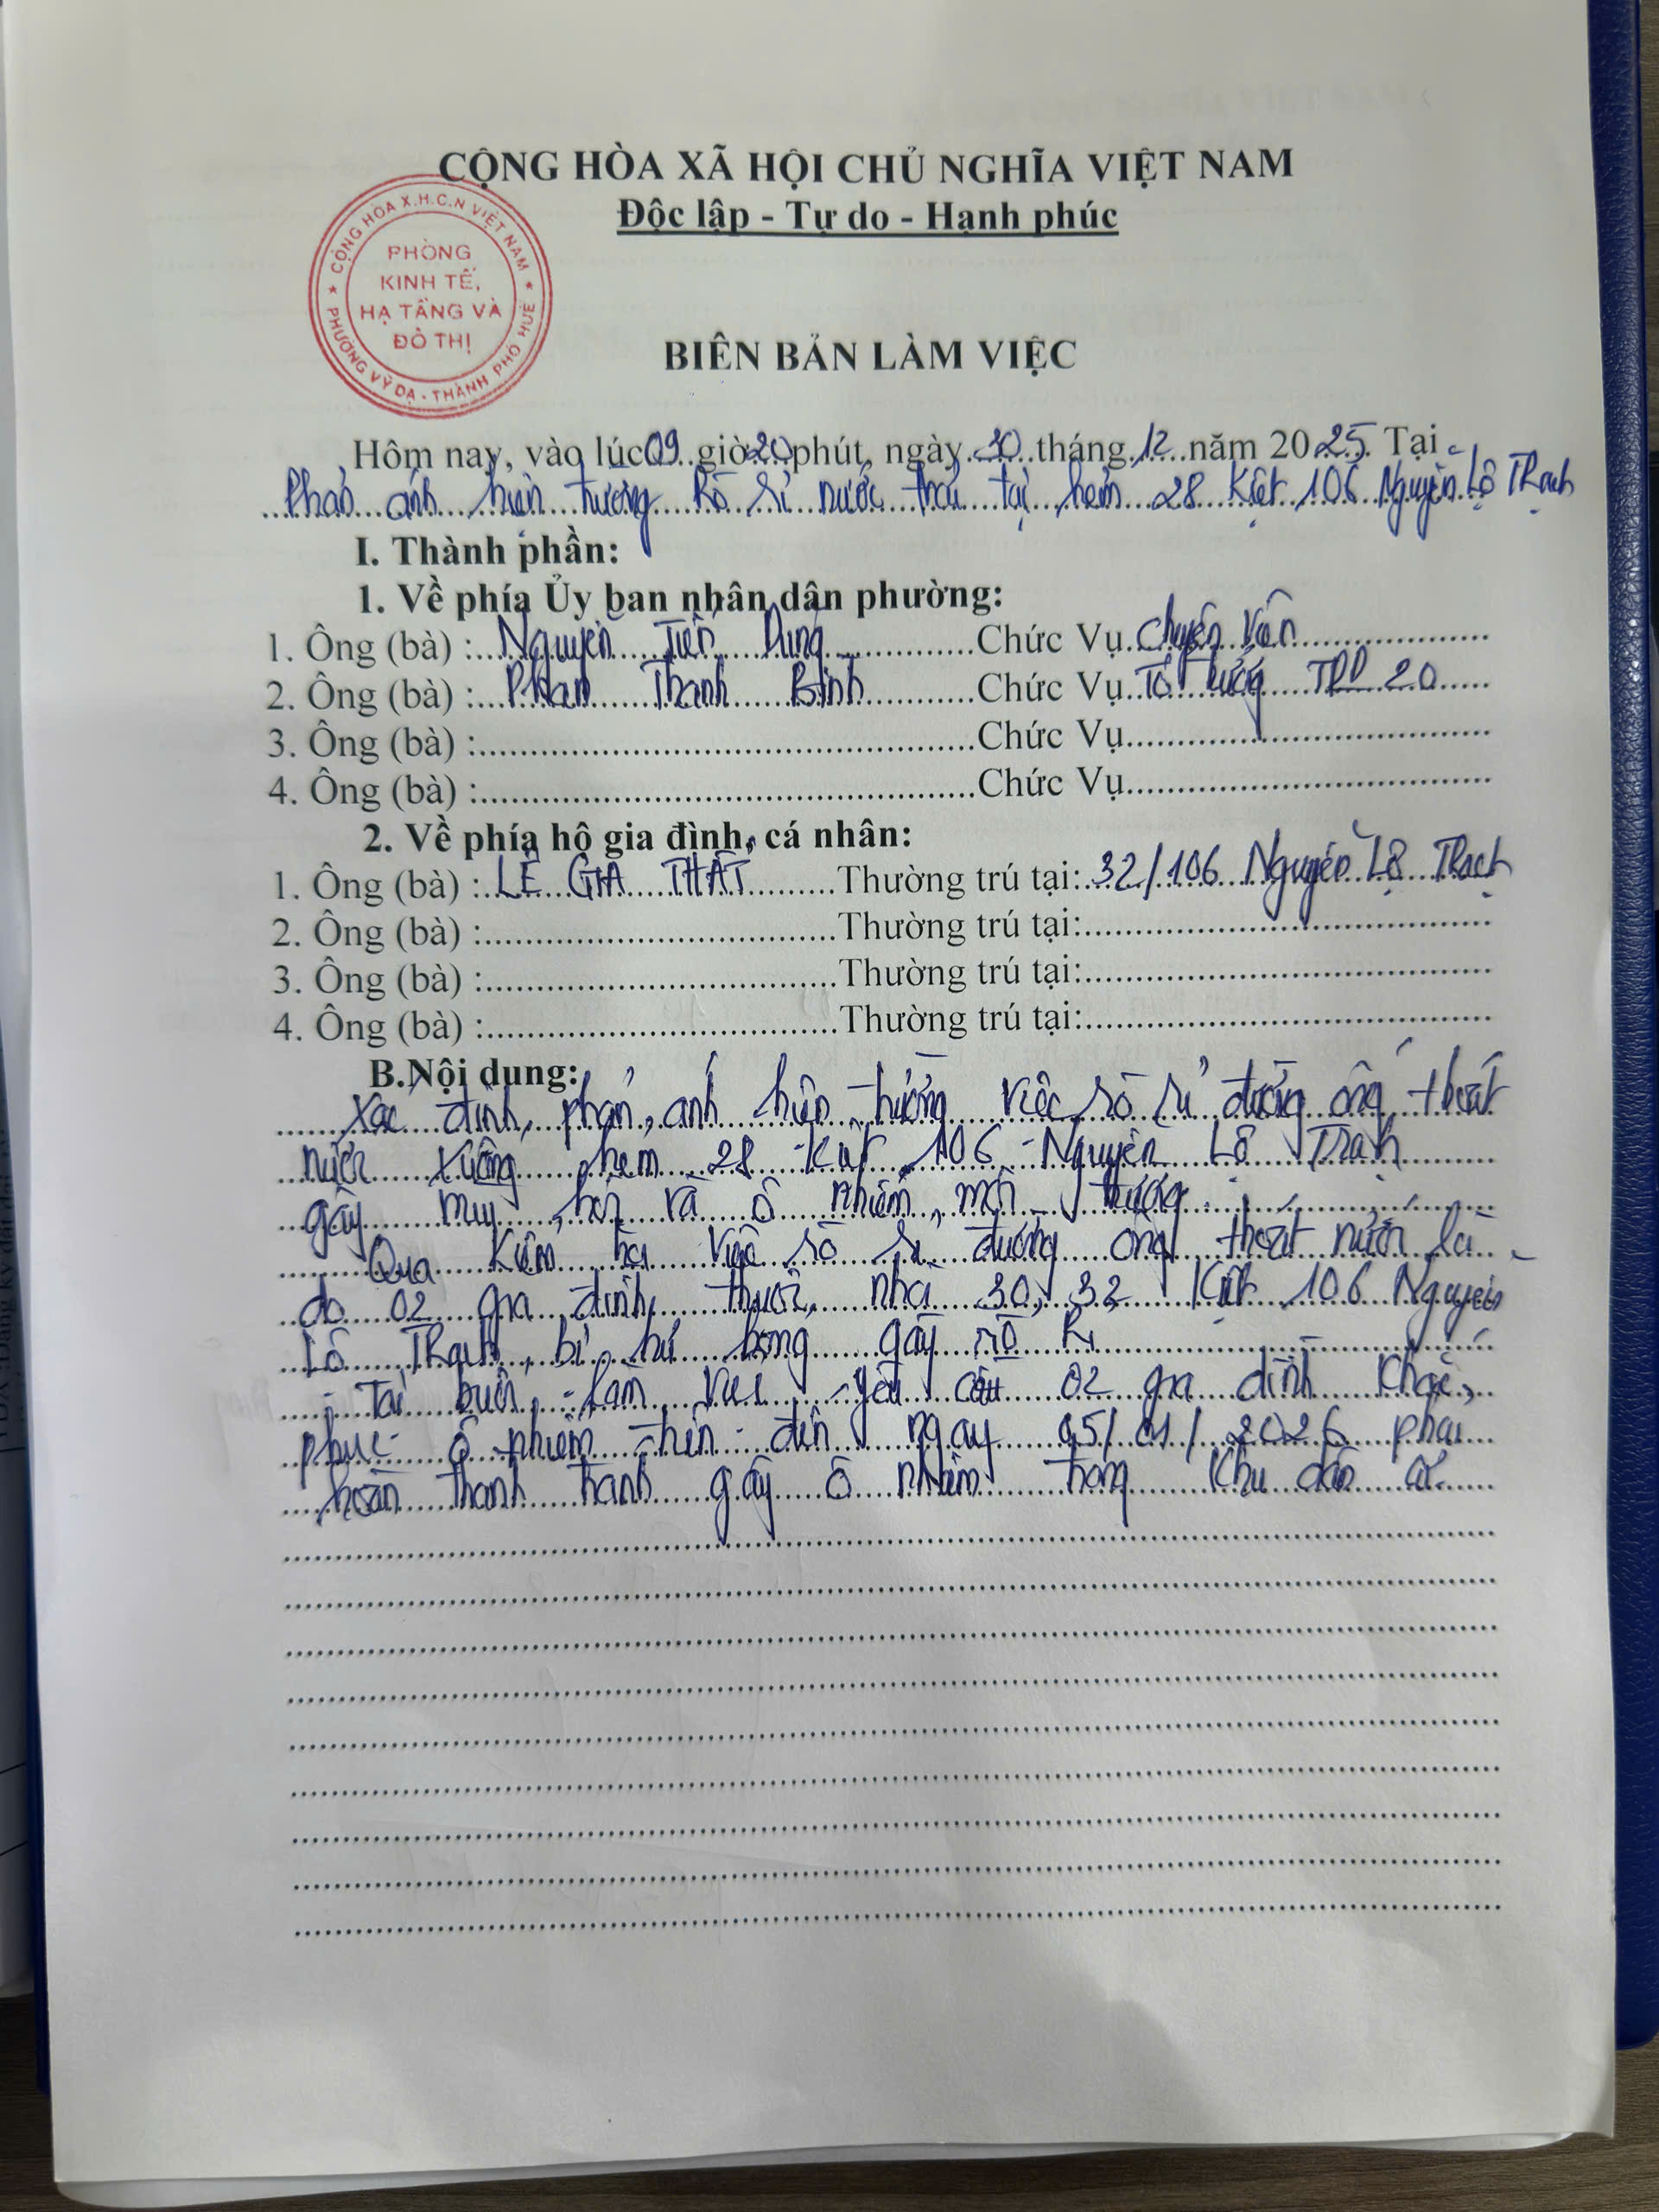 CỘNG HÒA XÃ HỘI CHỦ NGHĨA VIỆT NAM
Độc lập - Tự do - Hạnh phúc
CỘNG HÒA X.H.C.N VIỆT NAM
PHÒNG
KINH TẾ,
HẠ TẦNG VÀ
ĐÔ THỊ
PHƯỜNG VỸ DẠ - THÀNH PHỐ HUẾ
BIÊN BẢN LÀM VIỆC
Hôm nay, vào lúc 09 giờ 20 phút, ngày 30 tháng 12 năm 2025. Tại
Phản ánh hiện tượng rò rỉ nước thải tại hẻm 28 Kiệt 106 Nguyễn Lộ Trạch
I. Thành phần:
1. Về phía Ủy ban nhân dân phường:
1. Ông (bà) : Nguyễn Tiến Dũng Chức Vụ. Chuyên Viên
2. Ông (bà) : Phan Thanh Bình Chức Vụ. Tổ trưởng TDP 20
3. Ông (bà) : Chức Vụ
4. Ông (bà) : Chức Vụ
2. Về phía hộ gia đình, cá nhân:
1. Ông (bà) : LÊ GIA THẤT Thường trú tại: 32/106 Nguyễn Lộ Trạch
2. Ông (bà) : Thường trú tại:
3. Ông (bà) : Thường trú tại:
4. Ông (bà) : Thường trú tại:
B.Nội dung:
Xác định, phản ánh hiện tượng việc rò rỉ đường ống thoát
nước xuống hẻm 28 Kiệt 106 Nguyễn Lộ Trạch
gây mùi hôi và ô nhiễm môi trường.
Qua kiểm tra việc rò rỉ đường ống thoát nước là
do 02 gia đình thuộc nhà 30, 32 Kiệt 106 Nguyễn
Lộ Trạch bị hư hỏng gây rò rỉ
- Tại buổi làm việc yêu cầu 02 gia đình khắc
phục ô nhiễm đến ngày 05/01/2026 phải
hoàn thành tránh gây ô nhiễm trong khu dân cư.